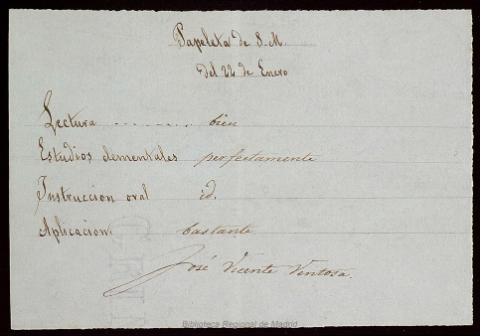 Papeleta de S. M.
del 22 de Enero
Lectura ........ bien
Estudios elementales perfectamente
Instruccion oral id.
Aplicacion. bastante
José Vicente Ventosa.
Biblioteca Regional de Madrid